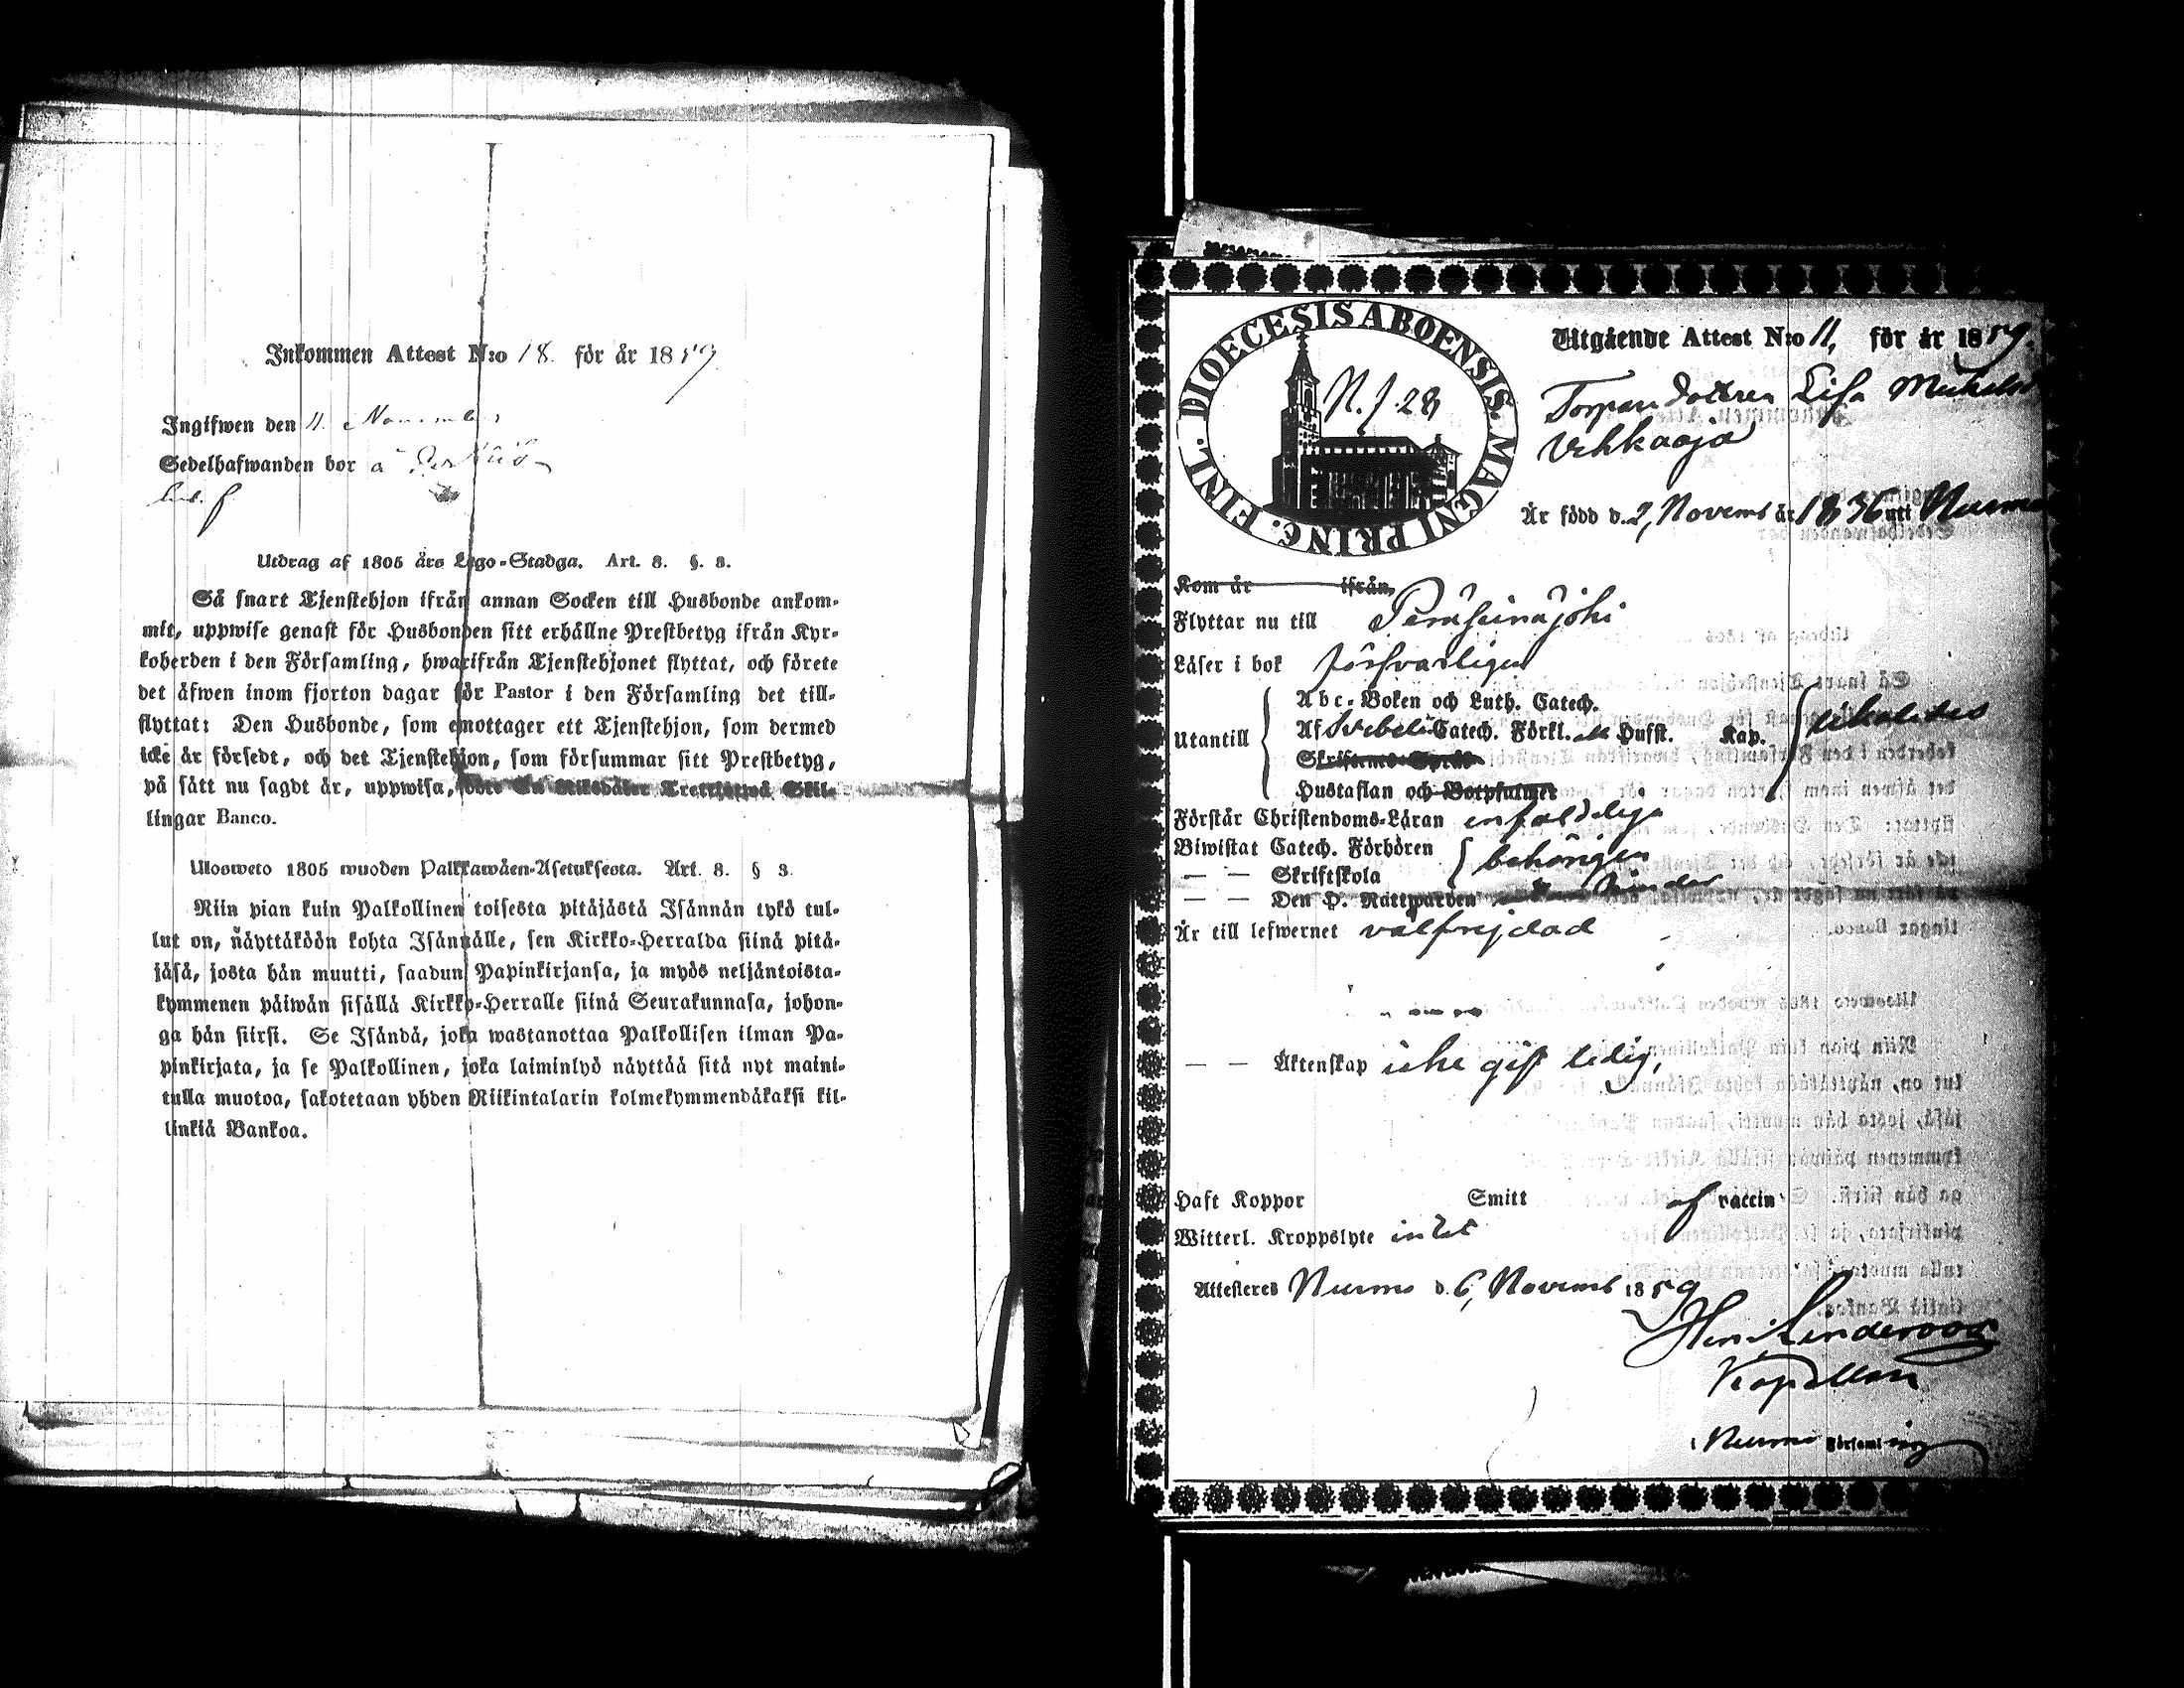 Inkommen Attest N:o 18. för år 1859
Ingifwen den 11. November
Sedelhafwanden bor å
Utdrag af 1805 års Lego-Stadga. Art. 8. §. 8.
Så snart Tjenstehjon ifrån annan Socken till Husbonde ankom-
mit, uppwise genast för Husbonden sitt erhållne Prestbetyg ifrån Kyr-
koherden i den Församling, hwarifrån Tjenstehjonet flyttat, och förete
det äfwen inom fjorton dagar för Pastor i den Församling det till-
flyttat: Den Husbonde, som emottager ett Tjenstehjon, som dermed
icke är försedt, och det Tjenstehjon, som försummar sitt Prestbetyg,
på sätt nu sagdt är, uppwisa, böte En Riksdaler Trettiotwå Skil-
lingar Banco.
Ulosweto 1805 wuoden Palkkawäen-Asetuksesta. Art. 8. § 3.
Niin pian kuin Palkollinen toisesta pitäjästä Isännän tykö tul-
lut on, näyttäköön kohta Isännälle, sen Kirkko-Herralda siinä pitä-
jäsä, josta hän muutti, saadun Papinkirjansa, ja myös neljäntoista-
kymmenen päiwän sisällä Kirkko-Herralle siinä Seurakunnasa, johon-
ga hän siirsi. Se Isändä, joka wastanottaa Palkollisen ilman Pa-
pinkirjata, ja se Palkollinen, joka laiminlyö näyttää sitä nyt maini-
tulla muotoa, sakotetaan yhden Riikintalarin kolmekymmendäkaksi kil-
linkiä Bankoa.
DIOECESIS ABOENSIS. MAGNI PRINC. FINL.
N. J. 28
Utgående Attest N:o 11, för år 1859.
Torpare dottren Lisa Mickelsd
Vehkaoja
Är född d. 2, Novemb år 1836 uti Nurmo
Kom år ifrån
Flyttar nu till Peräseinäjoki
Läser i bok försvarligen
Utantill
Abc-Boken och Luth. Catech.
Af Svebeli Catech. Förkl. Hufst. Kap.
likaledes
Skriftens Språk
Hustaflan och Botpsalmer
Förstår Christendoms-Läran enfaldeligen
Biwistat Catech. Förhören behörigen
— — Skriftskola
— — Den H. Nattwarden
Är till lefwernet välfrejdad
— — Äktenskap icke gift ledig,
Haft Koppor Smitt af vaccin
Witterl. Kroppslyte intet
Attesteres Nurmo d. 6, Novemb 1859
Kapellan
i Nurmo Församling